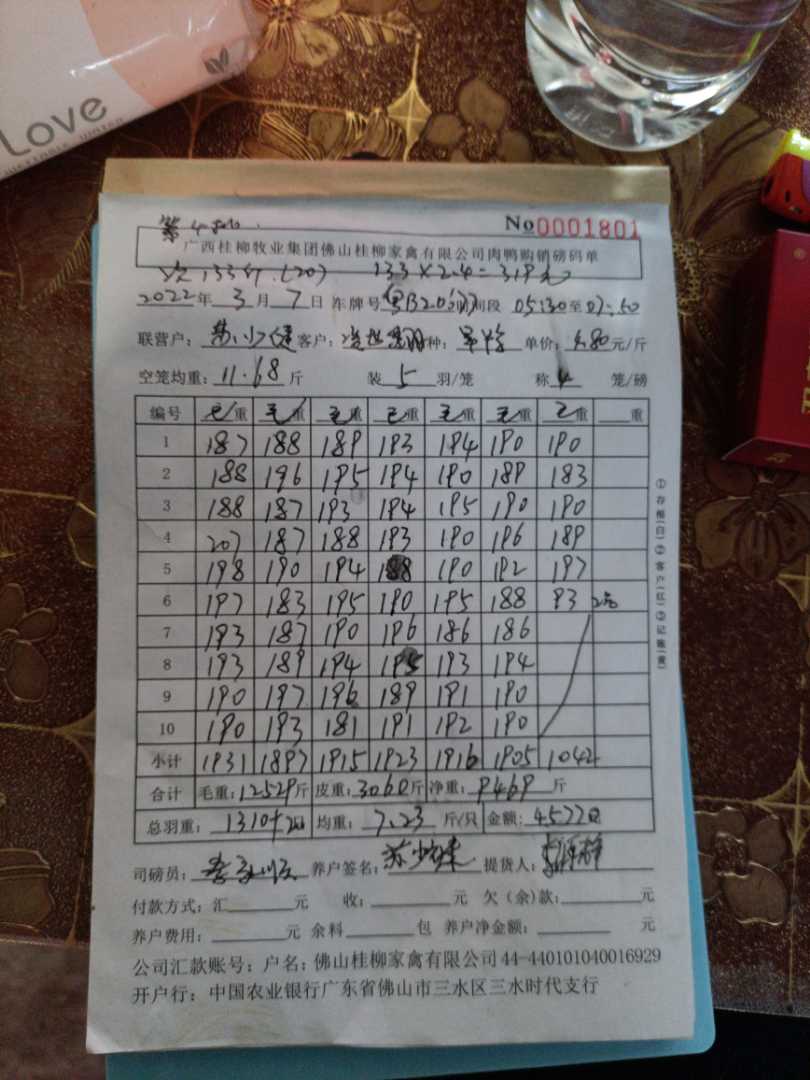 Love
VEGETABLE WATER
No0001801
广西桂柳牧业集团佛山桂柳家禽有限公司肉鸭购销磅码单
133斤(20) 133×2.4=319元
2022年3月7日 车牌号 间段 05:30至07:50
联营户: 客户: 种: 单价:4.80元/斤
空笼均重:11.68斤 装5羽/笼 称4笼/磅
编号 毛重 毛重 毛重 毛重 毛重 毛重 毛重 重
1 187 188 189 193 194 190 190
2 188 196 195 194 190 189 183
3 188 187 193 194 195 190 190
4 207 187 188 193 190 196 189
5 198 190 194 188 190 192 197
6 197 183 195 190 195 188 93
7 193 187 190 196 186 186
8 193 189 194 195 193 194
9 190 197 196 189 191 190
10 190 193 181 191 192 190
小计 1931 1897 1915 1923 1916 1905 1042
合计 毛重:12529斤 皮重:3060斤 净重:9469斤
总羽重: 均重:7.23斤/只 金额:
司磅员: 养户签名: 提货人:
付款方式:汇 元 收: 元 欠(余)款: 元
养户费用: 元 余料 包 养户净金额: 元
公司汇款账号:户名:佛山桂柳家禽有限公司44-440101040016929
开户行:中国农业银行广东省佛山市三水区三水时代支行
①存根(白)②客户(红)③记账(黄)